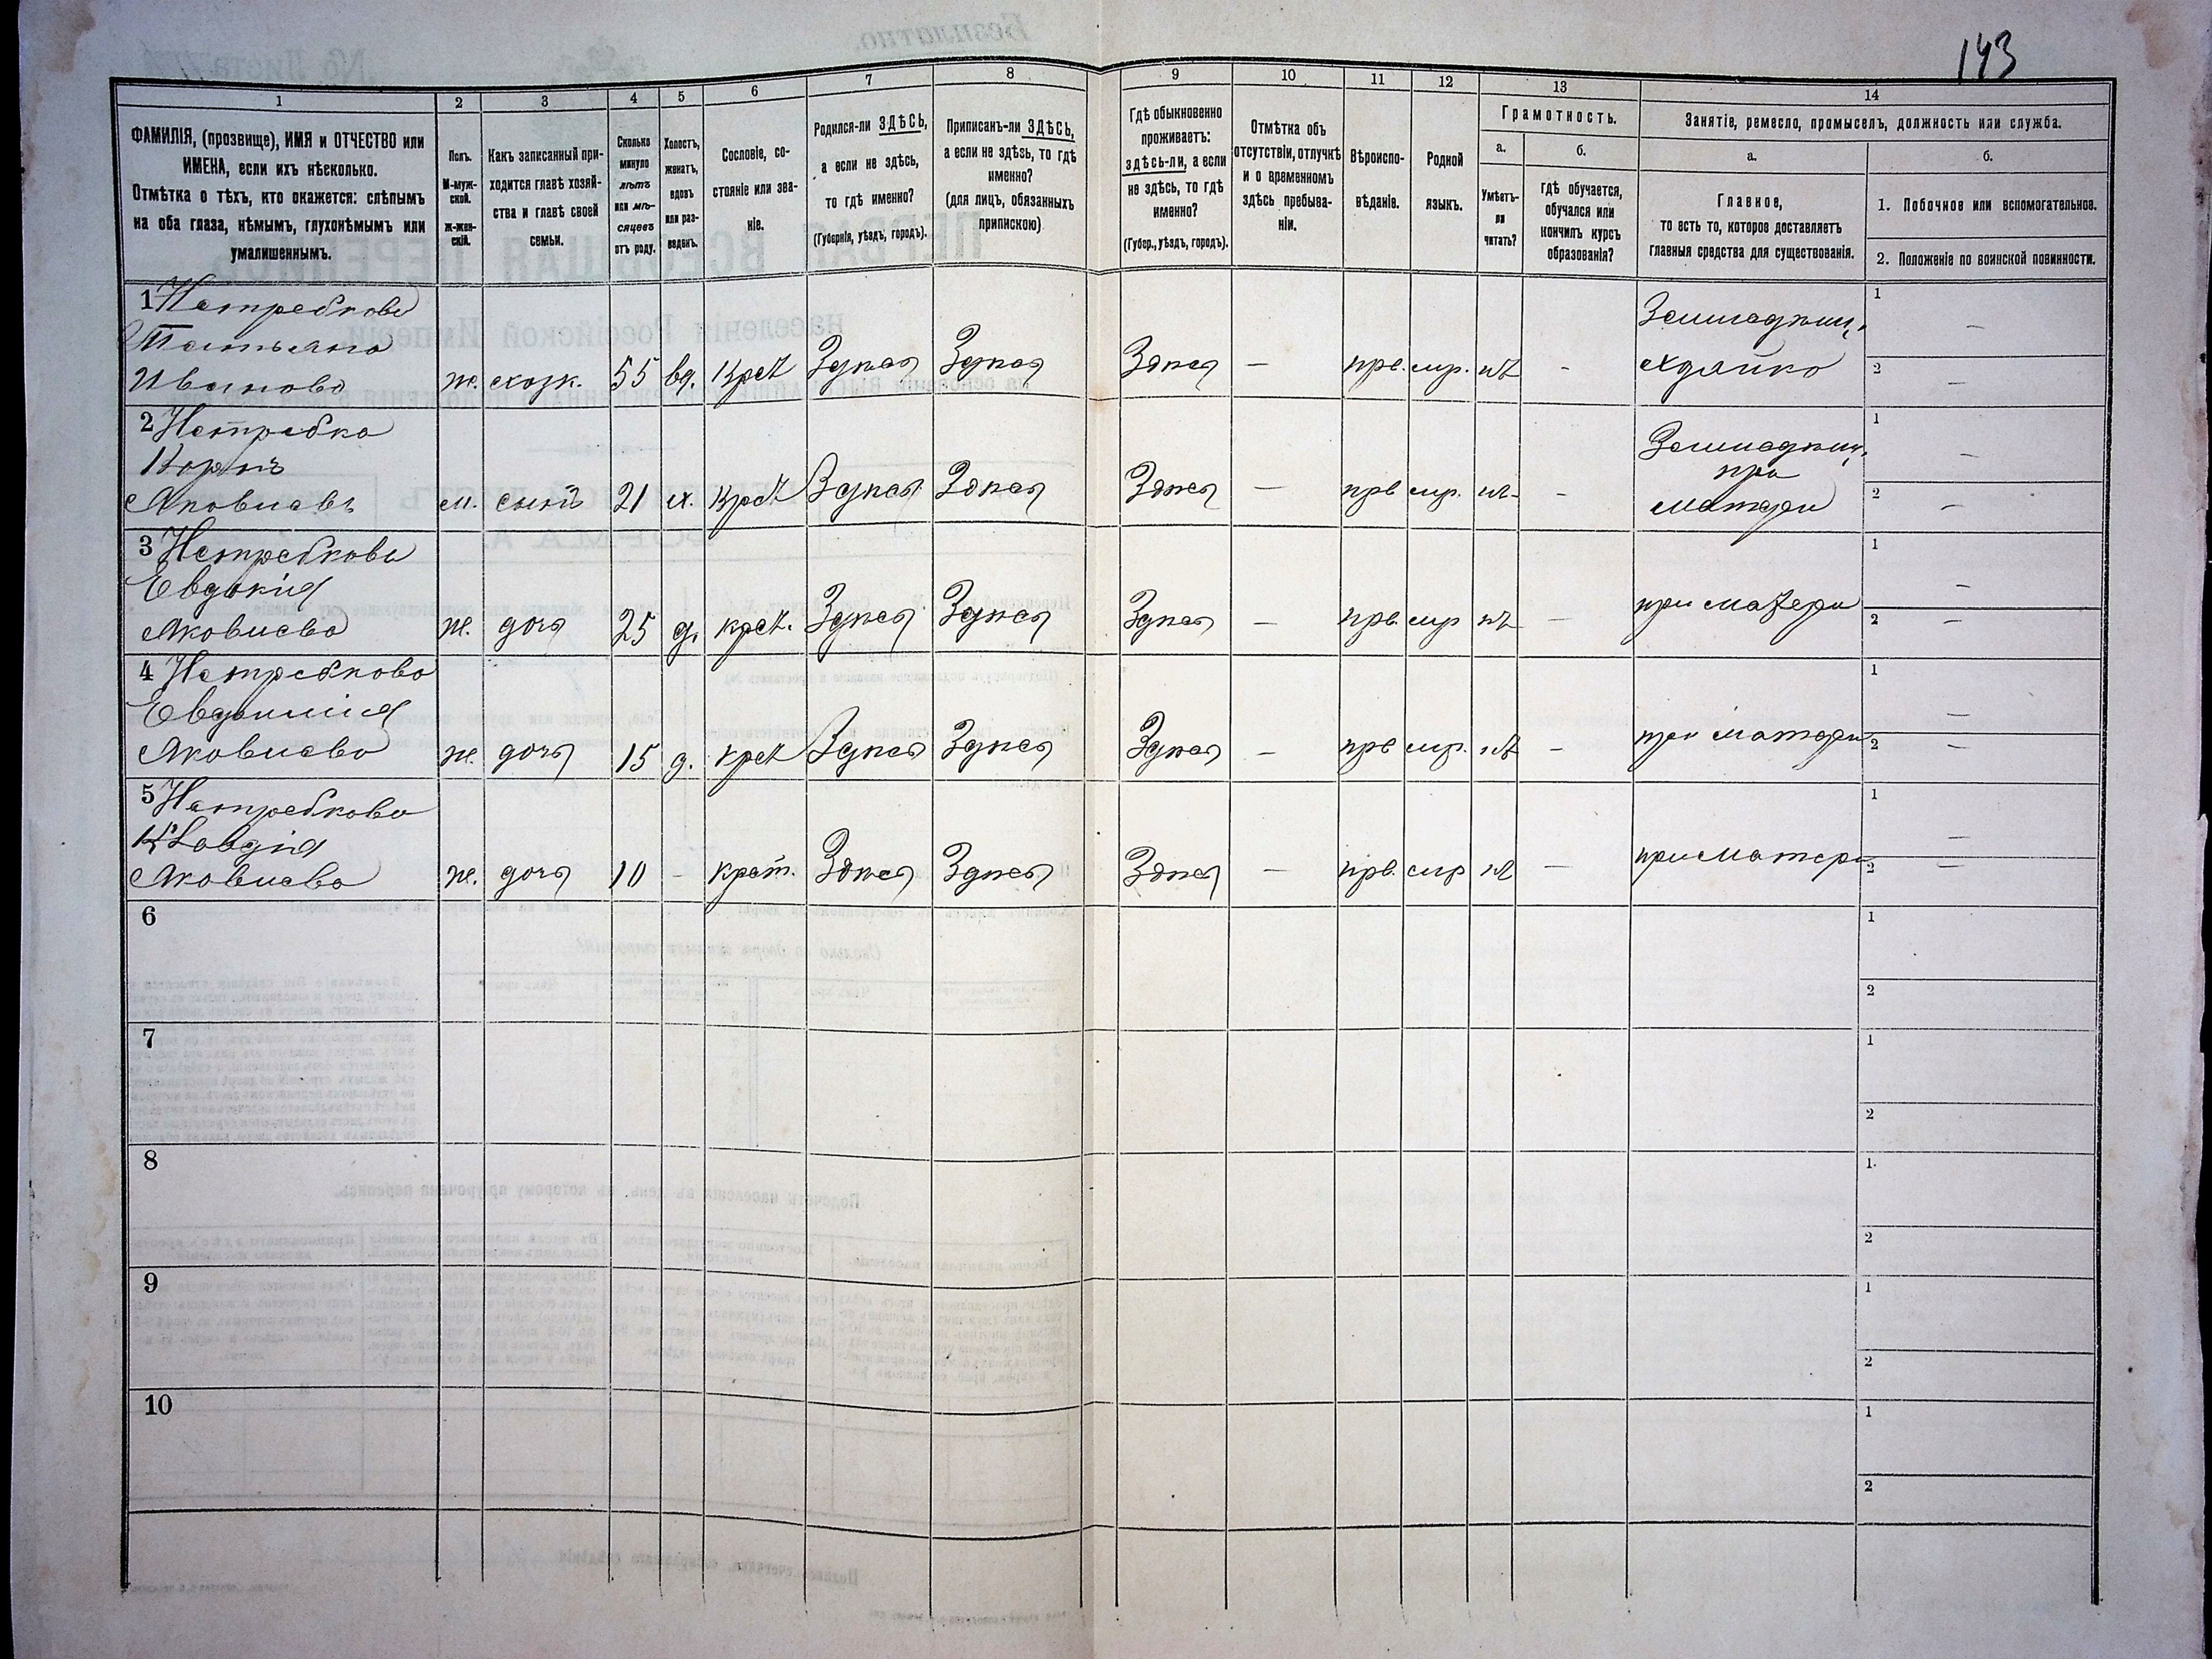 143
1
2
3
4
5
6
7
8
9
10
11
12
13
14
ФАМИЛІЯ, (прозвище), ИМЯ и ОТЧЕСТВО или
ИМЕНА, если ихъ нѣсколько.
Отмѣтка о тѣхъ, кто окажется: слѣпымъ
на оба глаза, нѣмымъ, глухонѣмымъ или
умалишеннымъ.
Полъ.
М-муж-
ской.
ж-жен-
скій.
Какъ записанный при-
ходится главѣ хозяй-
ства и главѣ своей
семьи.
Сколько
минуло
лѣтъ
или мѣ-
сяцевъ
отъ роду.
Холостъ,
женатъ,
вдовъ
или раз-
веденъ.
Сословіе, со-
стояніе или зва-
ніе.
Родился-ли ЗДѢСЬ,
а если не здѣсь,
то гдѣ именно?
(Губернія, уѣздъ, городъ).
Приписанъ-ли ЗДѢСЬ,
а если не здѣсь, то гдѣ
именно?
(для лицъ, обязанныхъ
припискою)
Гдѣ обыкновенно
проживаетъ:
здѣсь-ли, а если
не здѣсь, то гдѣ
именно?
(Губер., уѣздъ, городъ).
Отмѣтка объ
отсутствіи, отлучкѣ
и о временномъ
здѣсь пребыва-
ніи.
Вѣроиспо-
вѣданіе.
Родной
языкъ.
Грамотность.
а.
Умѣетъ-
ли
читать?
б.
гдѣ обучается,
обучался или
кончилъ курсъ
образованія?
Занятіе, ремесло, промыселъ, должность или служба.
а.
Главное,
то есть то, которое доставляетъ
главныя средства для существованія.
б.
1. Побочное или вспомогательное.
2. Положеніе по воинской повинности.
1 Нетребкова
Татьяна
Иванова ж. схозя. 55 вд. Крст Здѣсь Здѣсь Здѣсь — прв. мр. нѣт -
1 —
2 —
2 Нетребка
Яковлевъ м. сынъ 21 х. Крст Здѣсь Здѣсь Здѣсь — прв мр. -
при
матери
1 —
2 —
3 Нетребкова
Евдокія
Яковлева ж. дочь 25 д. крст. Здѣсь Здѣсь Здѣсь — прв. мр нѣт — при матери
1 —
2 —
4 Нетребкова
Яковлева ж. дочь 15 д. крст Здѣсь Здѣсь Здѣсь — прв мр. нѣт - при матери
1 —
2 —
5 Нетребкова
Клавдія
Яковлева ж. дочь 10 - крест. Здѣсь Здѣсь Здѣсь — прв. мр нѣт — при матери
1 —
2 —
6
1
2
7
1
2
8
1
2
9
1
2
10
1
2